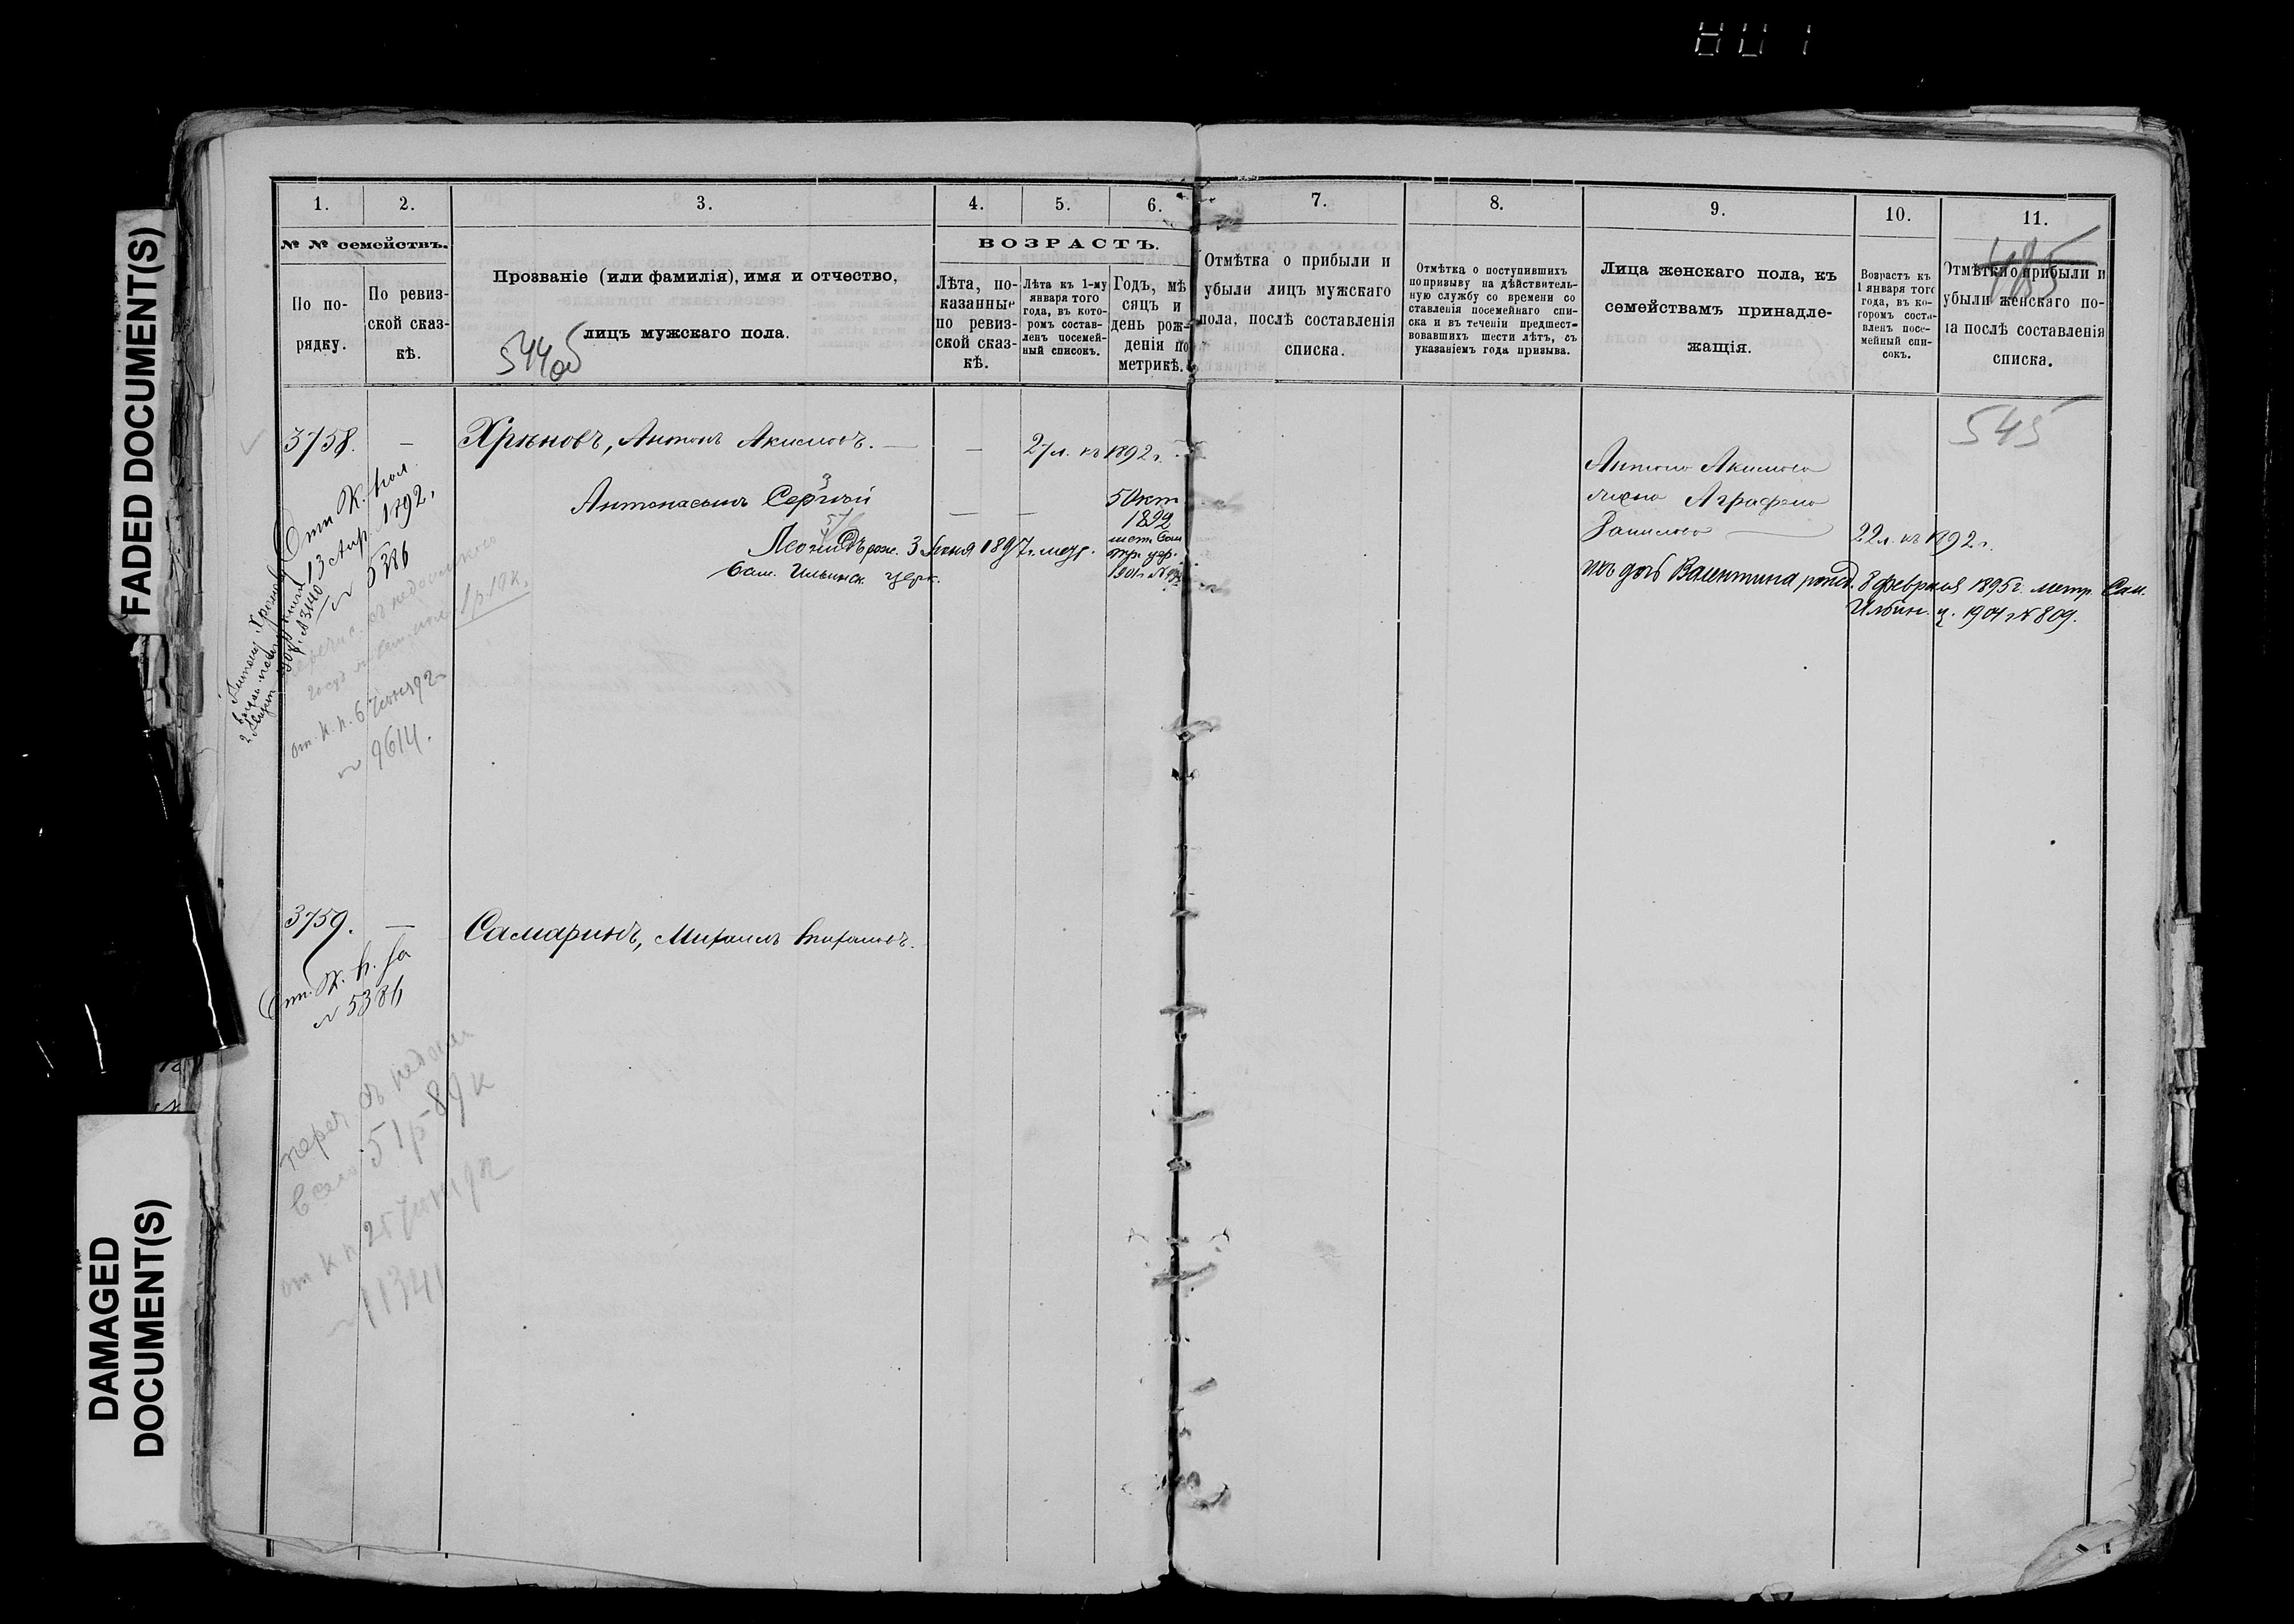 801
FADED DOCUMENT(S)
DAMAGED
DOCUMENT(S)
1.
2.
3.
4.
5.
6.
7.
8.
9.
10.
11.
№ № семействъ.
По по-
рядку.
По ревиз-
ской сказ-
кѣ.
Прозваніе (или фамилія), имя и отчество,
лицъ мужскаго пола.
544об
ВОЗРАСТЪ.
Лѣта, по-
казанные
по ревиз-
ской сказ-
кѣ.
Лѣта къ 1-му
января того
года, въ кото-
ромъ состав-
ленъ посемей-
ный списокъ.
Годъ, мѣ
сяцъ и
день рож-
денія по
метрикѣ.
Отмѣтка о прибыли и
убыли лицъ мужскаго
пола, послѣ составленія
списка.
Отмѣтка о поступившихъ
по призыву на дѣйствитель-
ную службу со времени со
ставленія посемейнаго спи-
ска и въ теченіи предшест-
вовавшихъ шести лѣтъ, съ
указаніемъ года призыва.
Лица женскаго пола, къ
семействамъ принадле-
жащія.
Возрастъ къ
1 января того
года, въ ко-
торомъ соста-
вленъ посе-
мейный спи-
сокъ.
485
Отмѣтки о прибыли и
убыли женскаго по-
ла послѣ составленія
списка.
545
3758. —
Хрѣновъ, Антонъ Акимовъ. — — 27 л. къ 1892 г.
Антона сынъ Сергѣй — — 5 Окт
1892
Леонидъ рож. 3 Іюня 1897 г. метр.
Сам. Ильинск. церк.
Отъ К. пал.
13 Апр 1892,
№ 5386
1 р. 19 к.
от К. п. 6 Іюня 92
№ 9614.
Антона Акимова
жена Аграфена
22 л. къ 1892 г.
ихъ дочь Валентина рожд. 8 февраля 1895 г. метр. Сам.
Ильин. ц. 1901 № 809.
3759. —
Самаринъ, Михаилъ
Отъ К. п. за
№ 5386
переч. съ недоим
51 р 89 к
от К п 25 Іюня 92
№ 11341